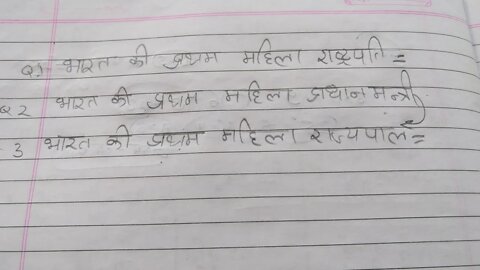 Q1 भारत की प्रथम महिला राष्ट्रपति =
Q2 भारत की प्रथम महिला प्रधानमन्त्री
3 भारत की प्रथम महिला राज्यपाल =